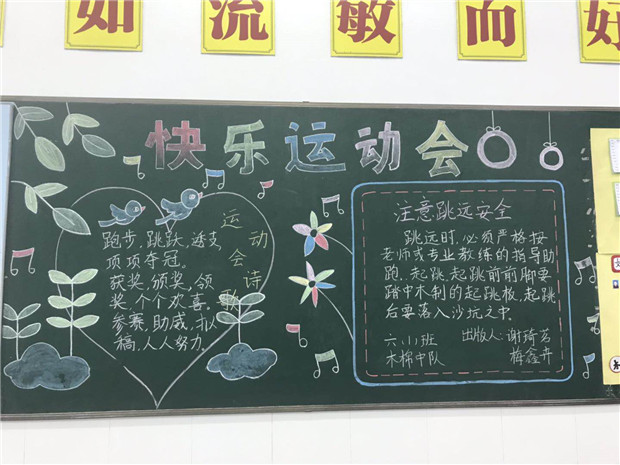 如流敏而好
快乐运动会
运动会诗歌
跑步,跳跃,透支
项项夺冠。
获奖,颁奖,领
奖,个个欢喜。
参赛,助威,拟
稿,人人努力。
注意跳远安全
跳远时,必须严格按
老师或专业教练的指导助
跑、起跳,起跳前前脚要
踏中木制的起跳板,起跳
后要落入沙坑之中.
六小班 出版人:谢琦茗
木棉中队 梅鑫卉